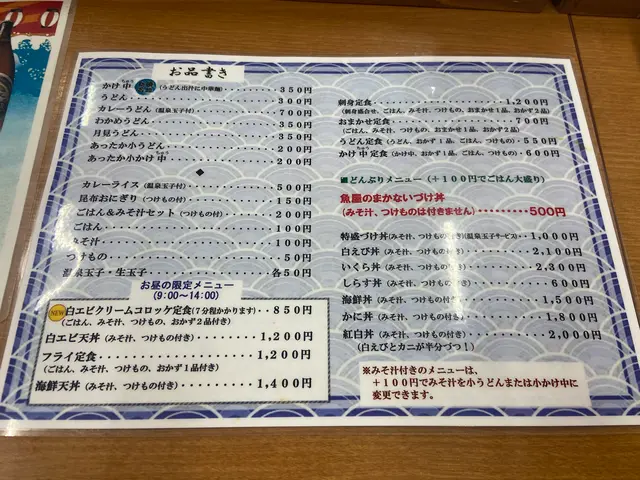 お品書き
ちゅう
かけ中 (うどん出汁に中華麺)・・・・・350円
うどん・・・・・300円
カレーうどん(温泉玉子付)・・・・・700円
わかめうどん・・・・・350円
月見うどん・・・・・350円
あったか小うどん・・・・・200円
ちゅう
あったか小かけ中・・・・・200円
◆
カレーライス(温泉玉子付)・・・・・500円
昆布おにぎり(つけもの付)・・・・・150円
ごはん&みそ汁セット(つけもの付)・・200円
ごはん・・・・・100円
みそ汁・・・・・100円
つけもの・・・・・50円
温泉玉子・生玉子・・・・・各50円
お昼の限定メニュー
(9:00～14:00)
NEW 白エビクリームコロッケ定食(7分程かかります)・・850円
(ごはん、みそ汁、つけもの、おかず2品付き)
白エビ天丼(みそ汁、つけもの付き)・・・・・1,200円
フライ定食・・・・・1,200円
(ごはん、みそ汁、つけもの、おかず1品付き)
海鮮天丼(みそ汁、つけもの付き)・・・・・1,400円
刺身定食・・・・・1,200円
(刺身盛合せ、ごはん、みそ汁、つけもの、おまかせ1品、おかず2品)
おまかせ定食・・・・・700円
(ごはん、みそ汁、つけもの、おまかせ1品、おかず2品)
うどん定食(うどん、おかず1品、ごはん、つけもの)・・・・・550円
ちゅう
かけ中定食(かけ中、おかず1品、ごはん、つけもの)・・・・・600円
■どんぶりメニュー(+100円でごはん大盛り)
魚屋のまかないづけ丼
(みそ汁、つけものは付きません)・・・・・500円
特盛づけ丼(みそ汁、つけもの付き)(温泉玉子サービス)・・1,000円
白えび丼(みそ汁、つけもの付き)・・・・・2,100円
いくら丼(みそ汁、つけもの付き)・・・・・2,300円
しらす丼(みそ汁、つけもの付き)・・・・・600円
海鮮丼(みそ汁、つけもの付き)・・・・・1,500円
かに丼(みそ汁、つけもの付き)・・・・・1,800円
紅白丼(みそ汁、つけもの付き)・・・・・2,000円
(白えびとカニが半分づつ!)
※みそ汁付きのメニューは、
+100円でみそ汁を小うどんまたは小かけ中に
変更できます。